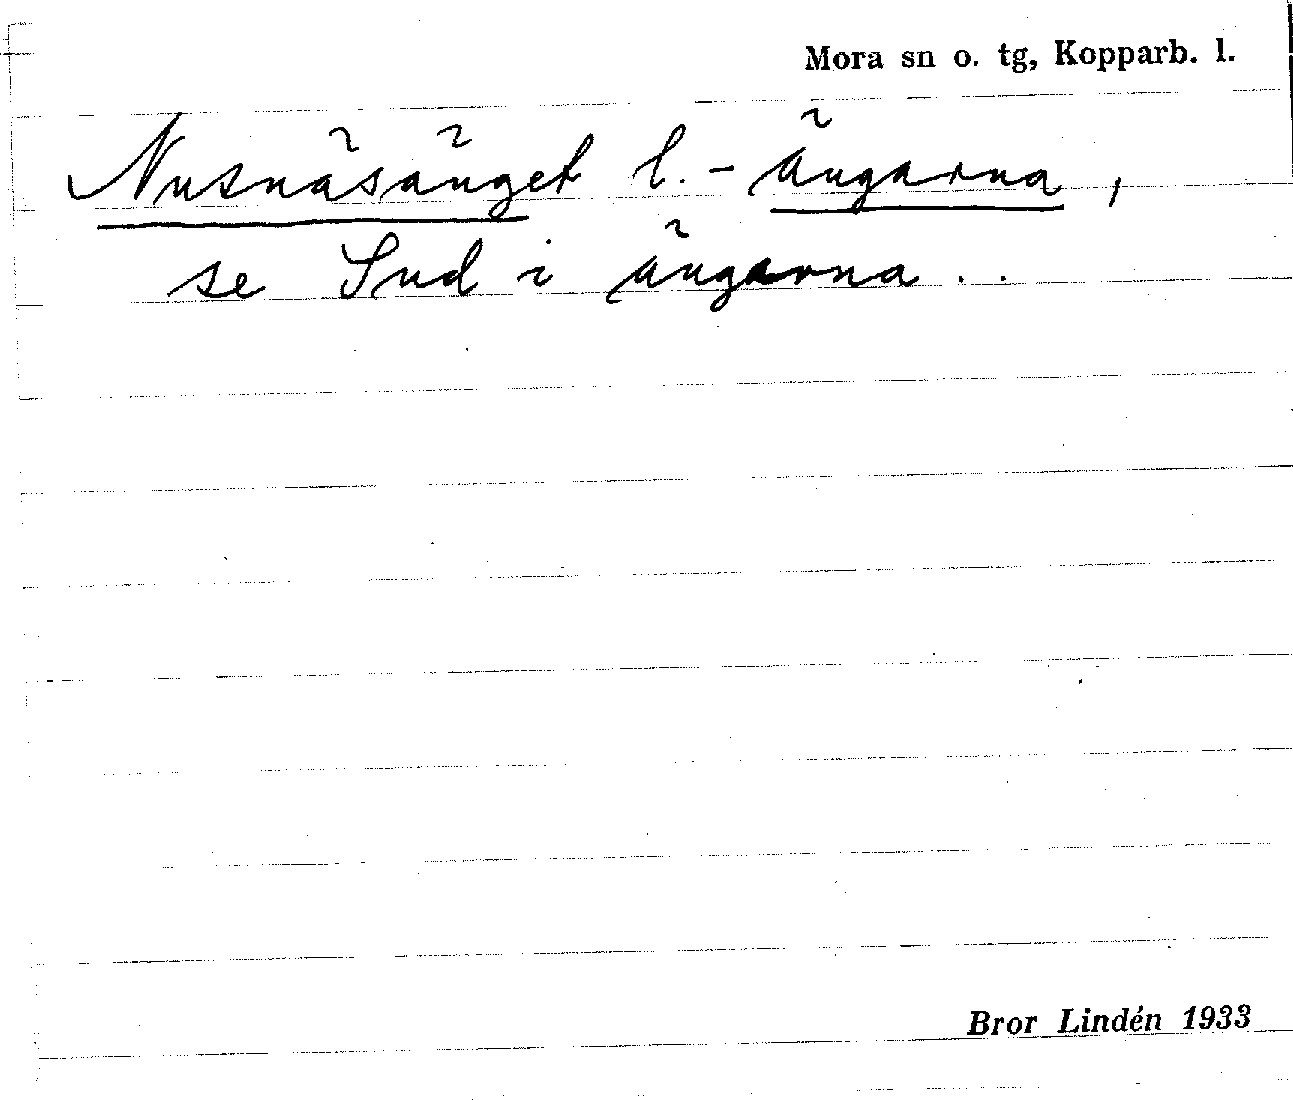 Mora sn o. tg, Kopparb. l.
Nusnäsänget l. -ängarna,
se Sud i ängarna..
Bror Lindén 1933